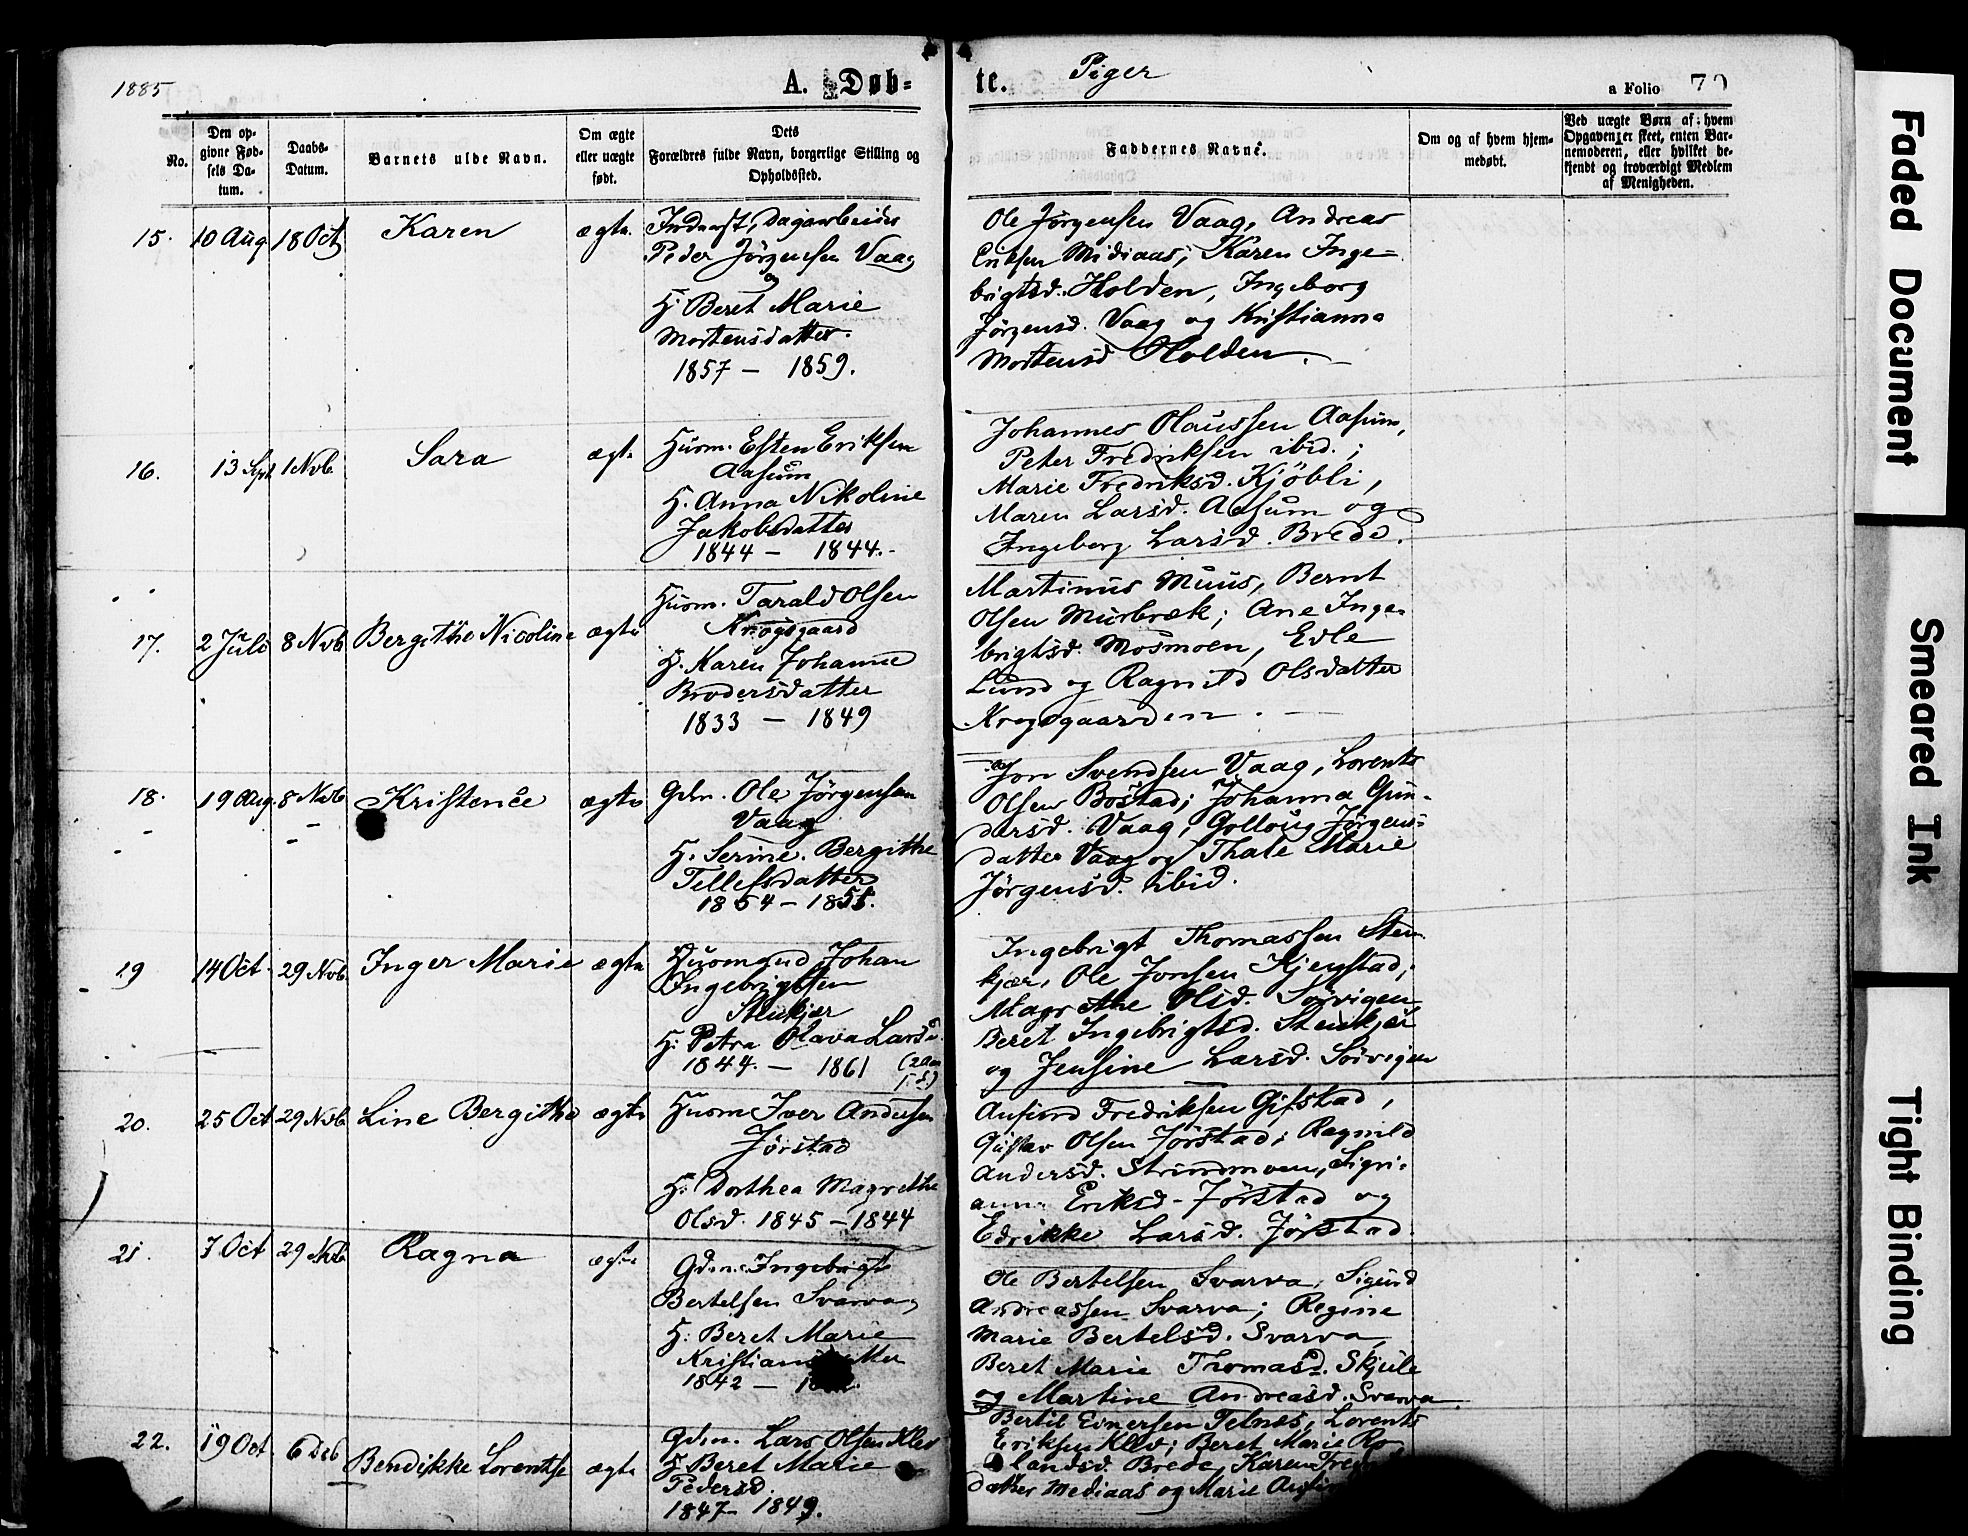 1885
A. Døb-
te.
Piger
a Folio 70
No.
Den op-
givne Fød-
sels Da-
tum.
Daabs-
Datum.
Barnets fulde Navn.
Om ægte
eller uægte
født.
Dets
Forældres fulde Navn, borgerlige Stilling og
Opholdssted.
Faddernes Navne.
Om og af hvem hjem-
medøbt.
Ved uægte Børn af hvem
Opgaven er skeet, enten Bar-
nemoderen, eller hvilket be-
kjendt og troværdigt Medlem
af Menigheden.
15. 10 Aug 18 Oct Karen ægte.
Inderst, Dagarbeider
Peder Jörgensen Vaag
og
H. Beret Marie
Mortensdatter.
1857 – 1859.
Ole Jörgensen Vaag, Andreas
Eriksen Midiaas; Karen Inge-
brigtsd. Holden, Ingeborg
Jörgensd. Vaag og Kristianna
Mortensd Holden.
16. 13 Spt 1 Nvb Sara ægte
Huom. Esten Eriksen
Aasum
H. Anna Nikoline
Jakobsdatter
1844 – 1844.
Johannes Olaussen Aasum,
Peter Fredriksen ibid.;
Marie Fredriksd. Kjöbli,
Maren Larsd. Aasum og
Ingeborg Larsd. Brede.
17. 2 Juli 8 Nvb Bergithe Nicoline ægte
Huom. Tarald Olsen
Krogsgaard
H. Karen Johanne
Brodersdatter
1833 – 1849
Martinus Muus, Bernt
Olsen Murbræk; Ane Inge-
brigtsd. Mosmoen, Edle
Lund og Ragnild Olsdatter
Krogsgaarden.
18. 19 Aug. 8 Nvb Kristence ægte
Gdm. Ole Jörgensen
Vaag
H. Serine Bergithe
Tellefsdatter
1854 – 1855.
Jon Svendsen Vaag, Lorents
Olsen Bostad; Johanna Gun-
dersd. Vaag, Golloug Jørgens-
datter Vaag og Thale Marie
Jörgensd. ibid.
19 14 Oct. 29 Nvb Inger Marie ægte
Huusmand Johan
Ingebrigtsen
Stenkjær
H. Petra Olava Larsd.
1844. – 1861
Ingebrigt Thomassen Sten-
kjær, Ole Jonsen Kjenstad,
Magrethe Olsd. Sörvigen
Beret Ingebrigtsd. Stenkjær
og Jensine Larsd. Sörvigen
20. 25 Oct 29 Nvb Line Bergithe ægte
Huom Iver Andersen
Jörstad
H. Dorthea Magrethe
Olsd. 1845 – 1844
Anfind Fredriksen Gifstad,
Gustav Olsen Jörstad; Ragnild
Andersd. Strindmoen, Sigri-
anna Eriksd. Jörstad og
Edrikke Larsd. Jörstad.
21. 7 Oct 29 Nvb Ragna ægte
Gdm. Ingebrigt
Bertelsen Svarva
H. Beret Marie
1842 –
Ole Bertelsen Svarva, Sigurd
Andreassen Svarva; Regine
Marie Bertelsd. Svarva,
Beret Marie Thomasd. Skjule
og Martine Andreasd. Svarva.
22. 19 Oct 6 Dcb Bendikke Lorentse ægte
Gdm. Lars Olsen Klev
H Beret Marie
Pedersd.
1847 – 1849.
Bertil Einersen Telnes, Lorents
Eriksen Klev; Beret Marie Ro-
landsd. Brede, Karen
datter Mediaas og Marie
Faded Document
Smeared Ink
Tight Binding